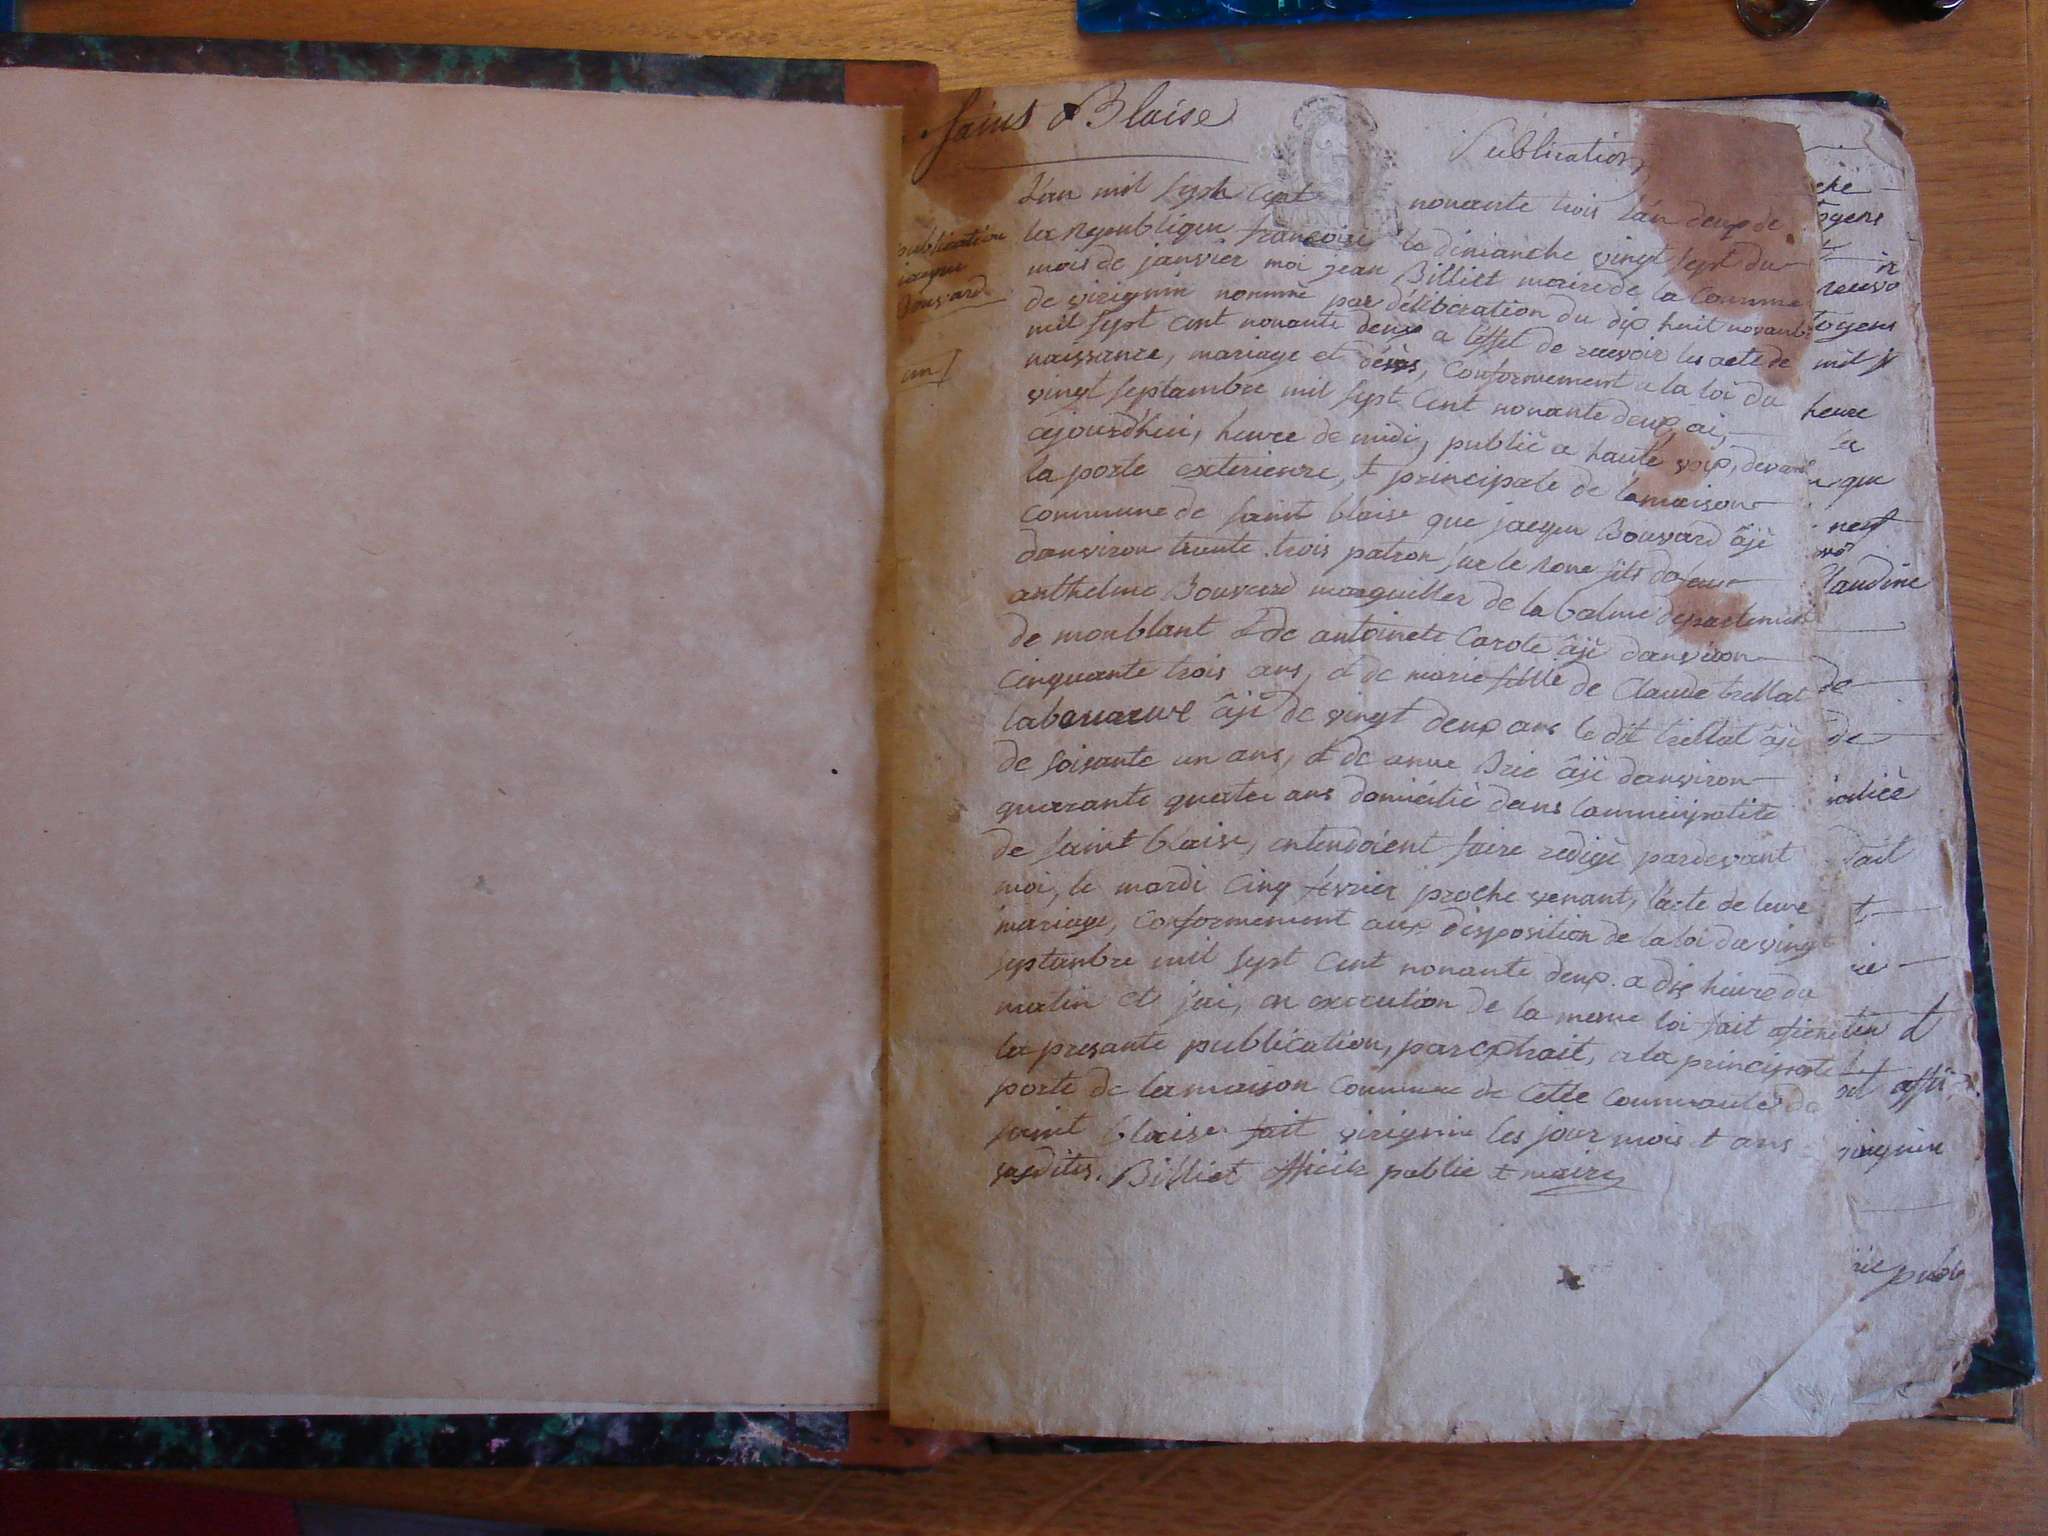 Saint Blaise
Publication
L'an mil sept cent nonante trois l'an deux de
la republique françoise le dimanche vingt sept du
mois de janvier moi jean Billiet maire de la Commune
de virignin nommé par délibération du dix huit novambre
mil sept cent nonante deux a l'effet de recevoir les acte de
naissance, mariage et décès, Conformement a la loi du
vingt septambre mil sept Cent nonante deux ai,
ajourdhui, heure de midi, publié a haute voix, devant
la porte exterieure, et principale de la maison
Commune de saint blaise que jacque Bouvard âjé
danviron trante trois patron sur le Rone fils de feu
anthelme Bouvard marguiller de la balme departement
de monblant & de antoinete Carole âjé danviron
Cinquante trois ans, & de marie fille de Claude trellat
âjé de vingt deux ans le dit trellat âjé
de soisante un ans, & de anne Brie âjé danviron
quarante quatre ans domicilié dans
de saint blaise, entendoient faire redigé pardevant
moi, le mardi Cinq février proche venant, l'acte de leure
mariage, Conformement aux disposition de la loi du vingt
septambre mil sept Cent nonante deux a dix heure du
matin et j'ai, en execution de la meme loi fait afficher
la presante publication, par extrait, a la principale
porte de la maison Commune de Cette Communauté de
saint blaise fait virignin les jour mois & ans
susdites. Billiet officie public & maire
publication
jacque
Bouvard
toyens
toyens
mil
heure
la
que
neuf
Claudine
de
de
fait
virignin